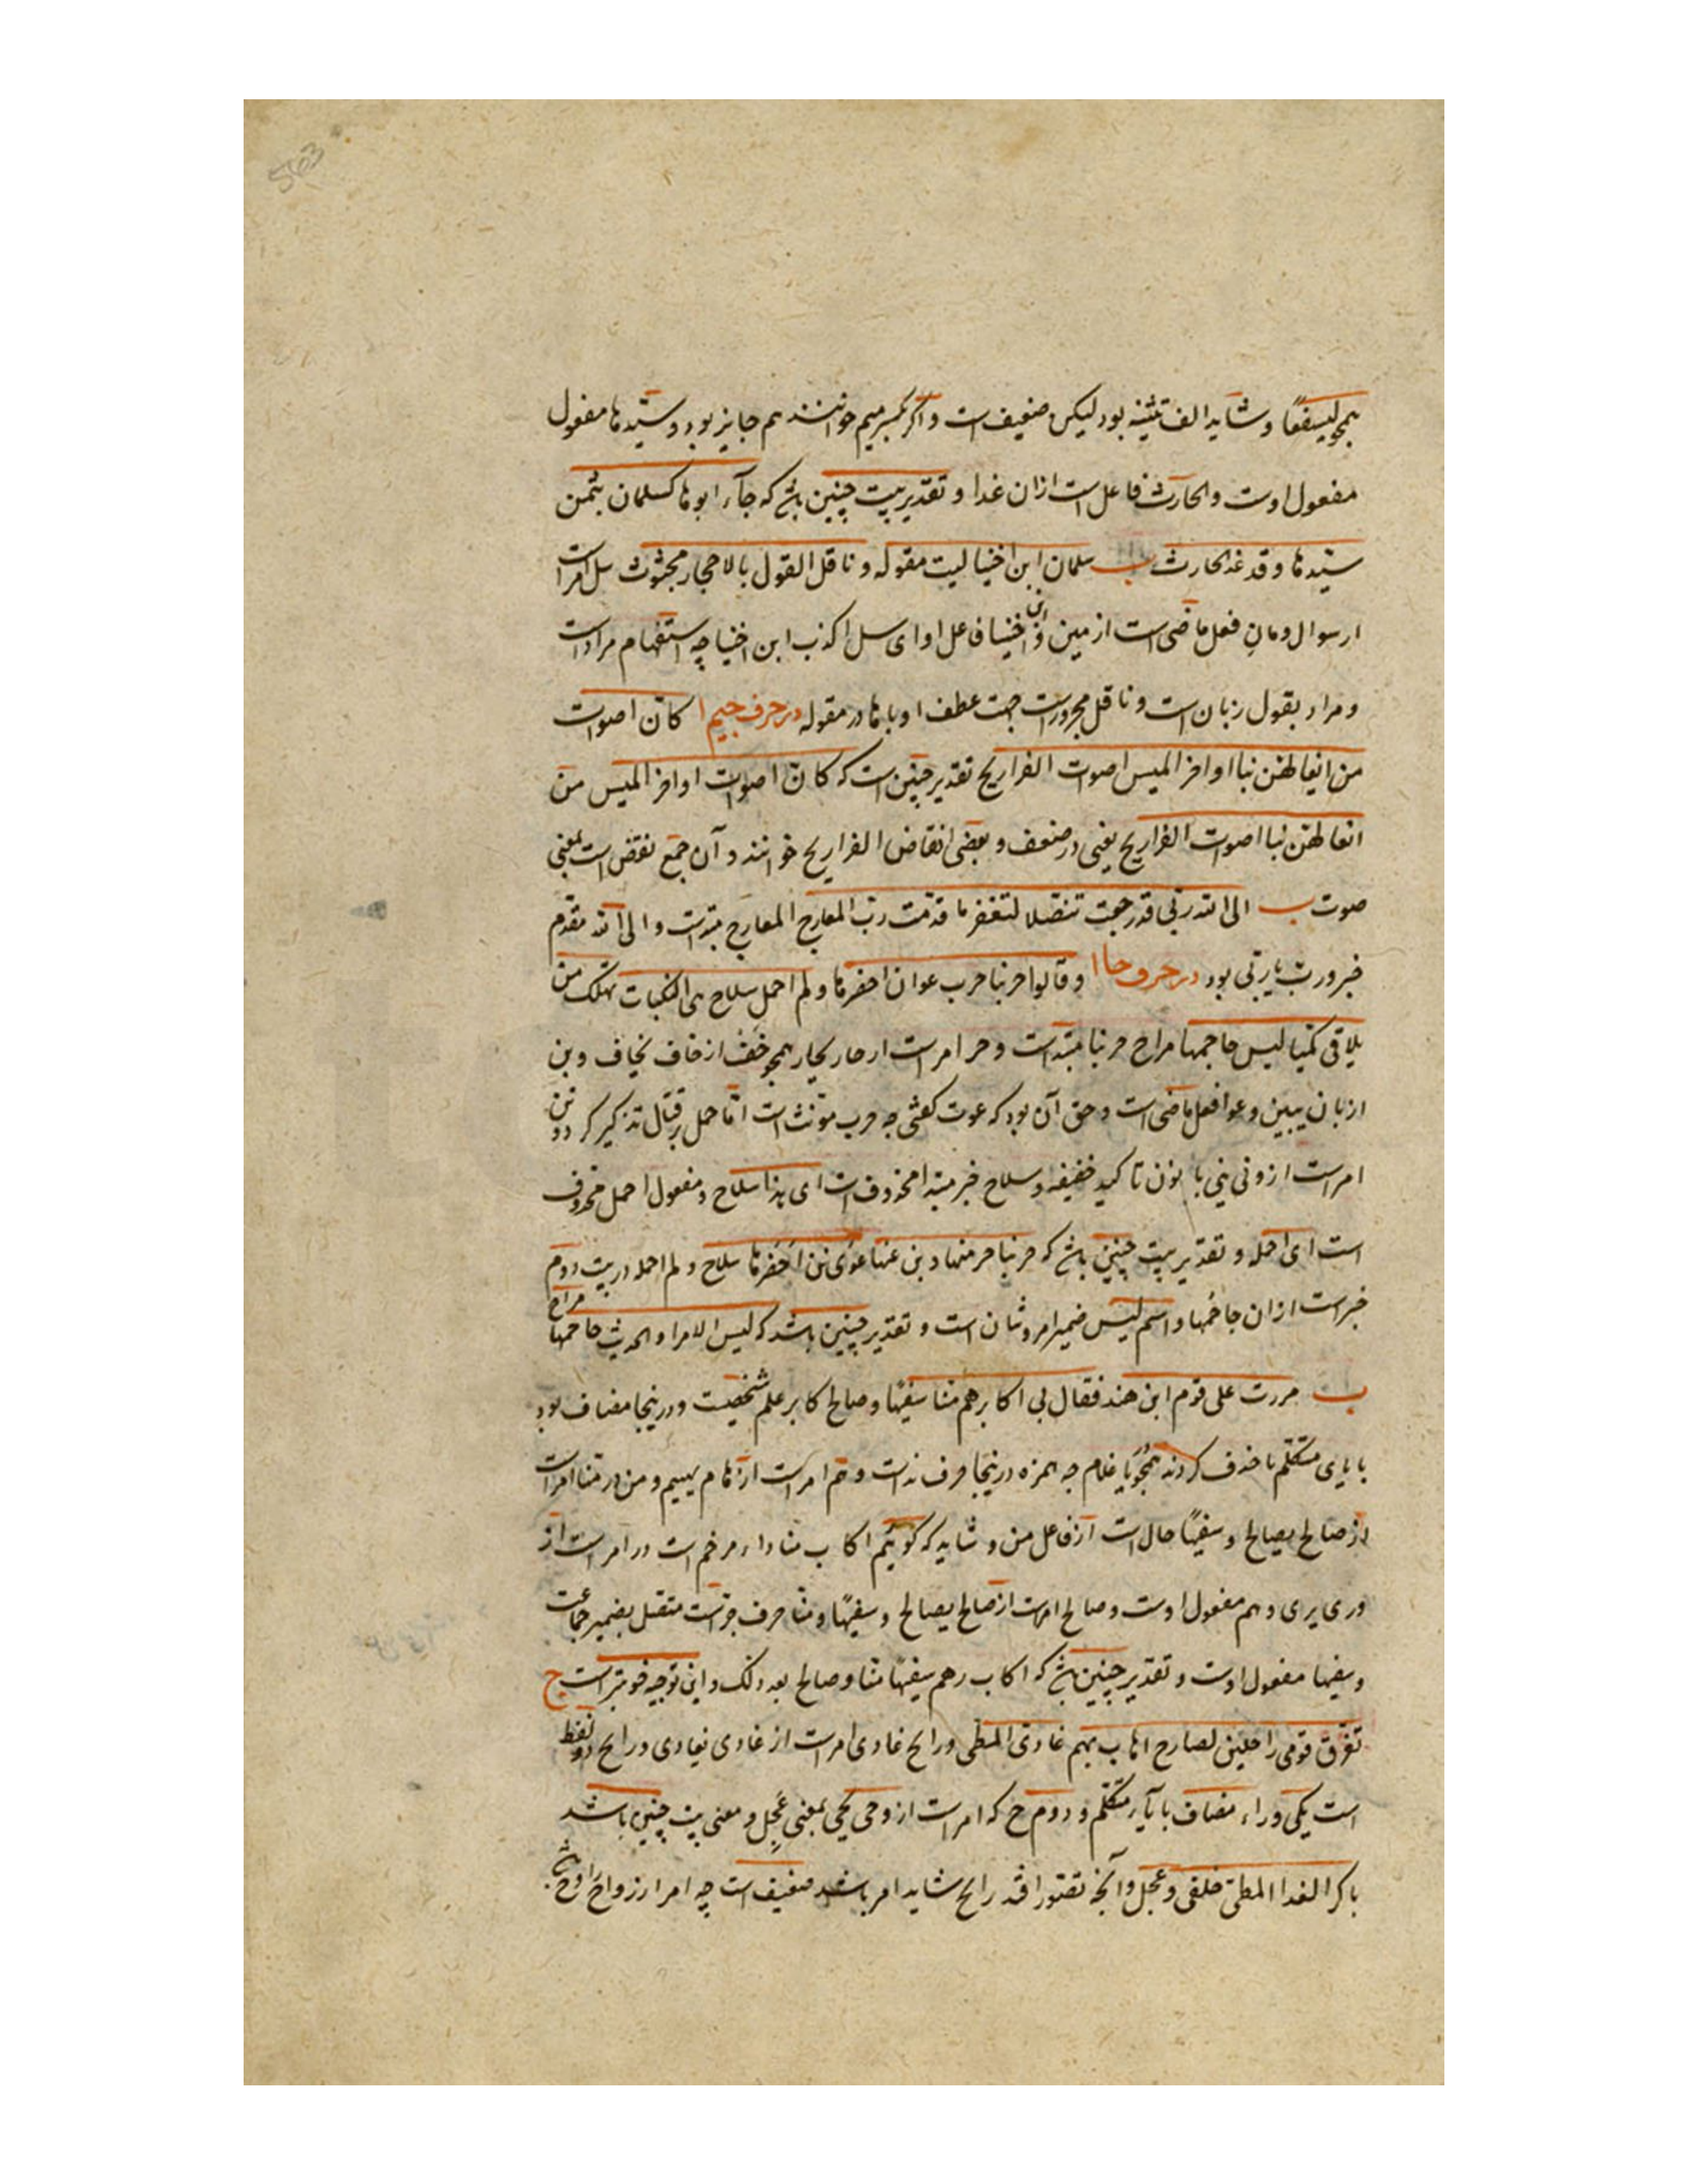 همچو لیسفعًا و شاید الف تثنیه بود لیکن ضعیفست و اگر بکسر میم خوانند هم جایز بود و سیّدها مفعول
مفعول اوست و الحارث فاعل است ازان غدا و تقدیر بیت چنین باشد که جآء ابوها کسلمان بثمن
سیّدها و قد غدا لحارث ب سلمان ابن اخنیا لیت مقوله و ناقل القول بالاحجار مجثوث سل امرست
از سوال و مان فعل ماضی است از مین و ابن اخنیا فاعل او ای سل اکذب ابن اخنیا چه استفهام مرادست
و مراد بقول زبان است و ناقل مجرورست جهت عطف او با ها در مقوله در حرف جیم ا کانّ اصوات
من ایغالهن بنا اواخر المیس اصوات الفراریج تقدیر چنین است که کانّ اصوات اواخر المیس من
ایغالهن بنا اصوات الفراریج یعنی در ضعف و بعضی انقاض الفراریج خوانند و آن جمع نقض است بمعنی
صوت ب الی الله ربّی قد رجعت تنصّلا لتغفر ما قدّمت ربّ المعارج المعارج مبتداست و الی الله مقدم
خبر و رب یا ربّی بود در حرف حا ا و قالوا حربنا حرب عوان احفرها و لم احمل سلاح می النکبات تهلک من
یلاقی کمیا لیس جاحمها مراح حربنا مبتداست و حر امرست از حار یحار همچو خف از خاف یخاف و بن
از بان یبین و عوا فعل ماضی است و حق آن بود که عوت گفتی چه حرب مؤنث است امّا حمل بر قتال تذکیر کرد و نن
امرست از ونی ینی با نون تاکید خفیفه و سلاح خبر مبتدا محذوف است ای هذا سلاح و مفعول احمل محذوف
است ای احمله و تقدیر بیت چنین باشد که حربنا حر منها و بن عنها عوی نن احفرها سلاح و لم احمله در بیت دوم
خبرست ازان جاحمها و اسم لیس ضمیر امر و شان است و تقدیر چنین باشد که لیس الامر او الحدیث جاحمها مراح
ب مررت علی قوم ابن هند فقال لی اکابر هم منا سفیهًا و صالح اکابر علم شخصیست و درینجا مضاف بود
با یای متکلم تا حذف کردند همچو یا غلام چه همزه درینجا حرف نداست و هم امرست از هام یهیم و من در منّا امرست
از صالح یصالح و سفیهًا حال است از فاعل من و شاید که گوییم اکاب منادا مرخم است و را امرست از
وری یری و هم مفعول اوست و صالح امرست از صالح یصالح و سفیهًا و منا حرف جرّست متصل بضمیر جماعت
و سفیها مفعول اوست و تقدیر چنین باشد که اکاب رهم سفیهًا منا و صالح بعد ذلک و این توجیه خوبترست ج
تفرّق قومی راحلین لصارح اهاب بهم غادی المطی و رایح غادی امرست از غادی یغادی و رایح دو لفظ
است یکی وراء مضاف با یآء متکلم و دوم ح که امرست از وحی یحی بمعنی عجل و معنی بیت چنین باشد
باکر الغدا المطی خلفی و عجل و آنچه تصور افتد رایح شاید امر باشد ضعیف است چه امر از رواح